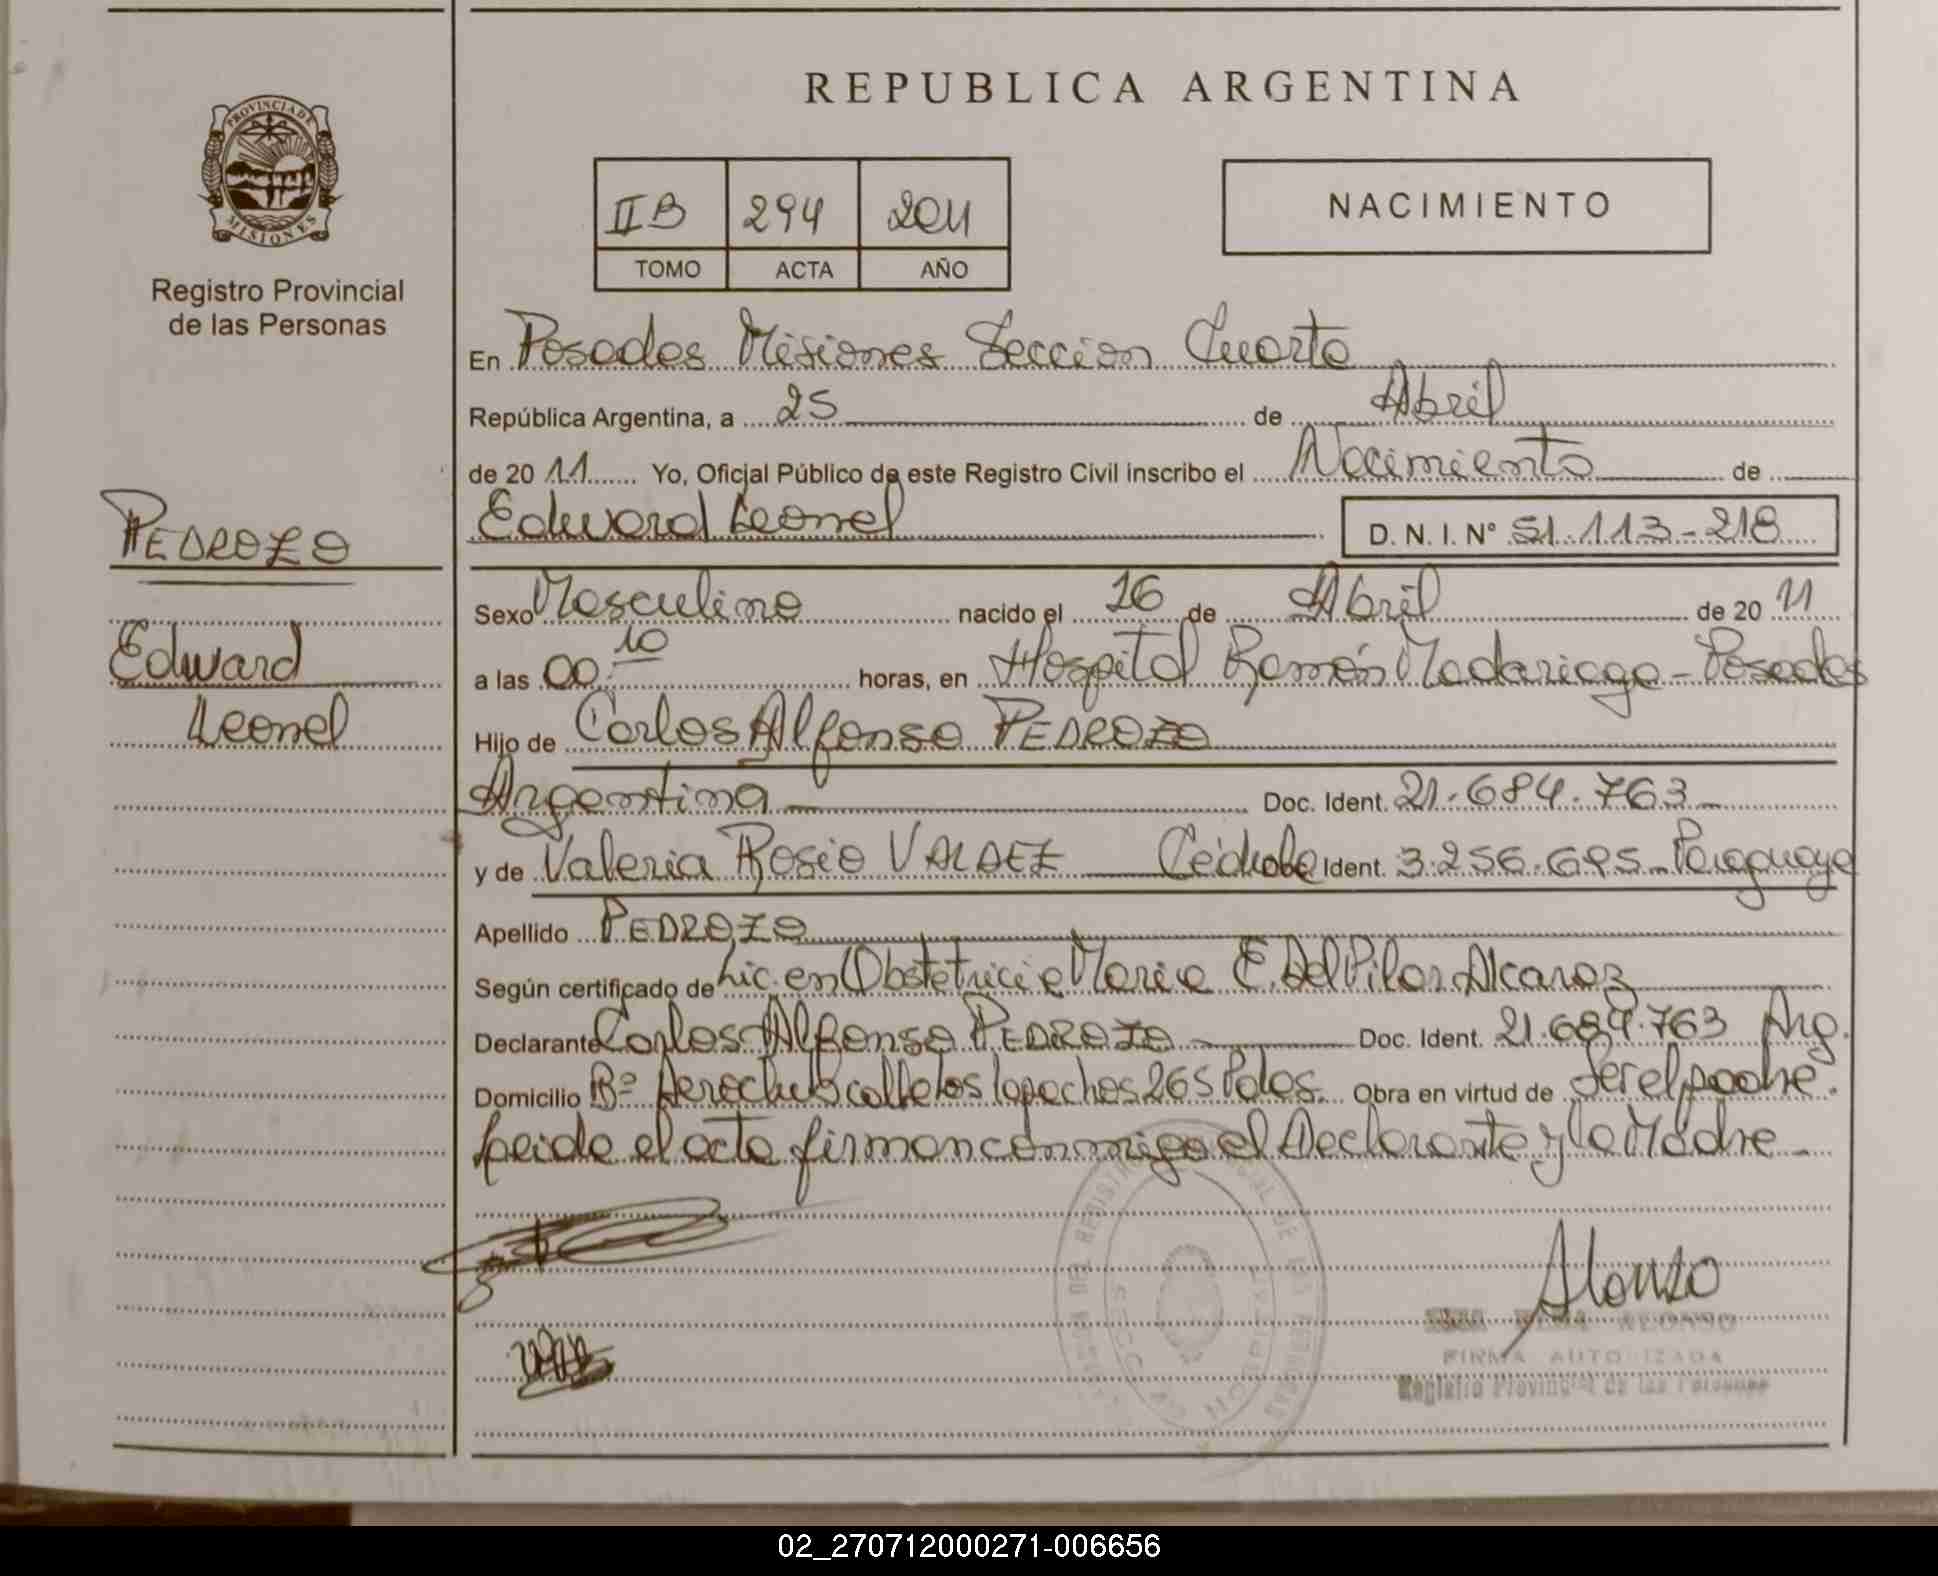 REPUBLICA ARGENTINA
PROVINCIA DE
MISIONES
Registro Provincial
de las Personas
IIB 294 2011
TOMO ACTA AÑO
NACIMIENTO
En Posadas Misiones Seccion Cuarta
República Argentina, a 25 de Abril
de 20 11 Yo, Oficial Público de este Registro Civil inscribo el Nacimiento de
PEDROZO
Edward Leonel D. N. I. Nº 51.113-218
Sexo Masculino nacido el 16 de Abril de 20 11
Edward
Leonel
a las 00.10 horas, en Hospital Ramón Madariaga - Posadas
Hijo de Carlos Alfonso PEDROZO
Argentina Doc. Ident. 21.684.763
y de Valeria Rosio VALDEZ Cédula Ident. 3.256.695 - Paraguaya
Apellido PEDROZO
Según certificado de Lic. en Obstetricia Maria E. Del Pilar Alcaraz
Declarante Carlos Alfonso PEDROZO Doc. Ident. 21.684.763 Arg.
Domicilio Bº Aeroclub calle los lapachos 265 Pdas. Obra en virtud de Ser el padre.
Leida el acta firman conmigo el Declarante y la Madre
Alonso
ALONSO
FIRMA AUTORIZADA
Registro Provincial de las Personas
02_270712000271-006656